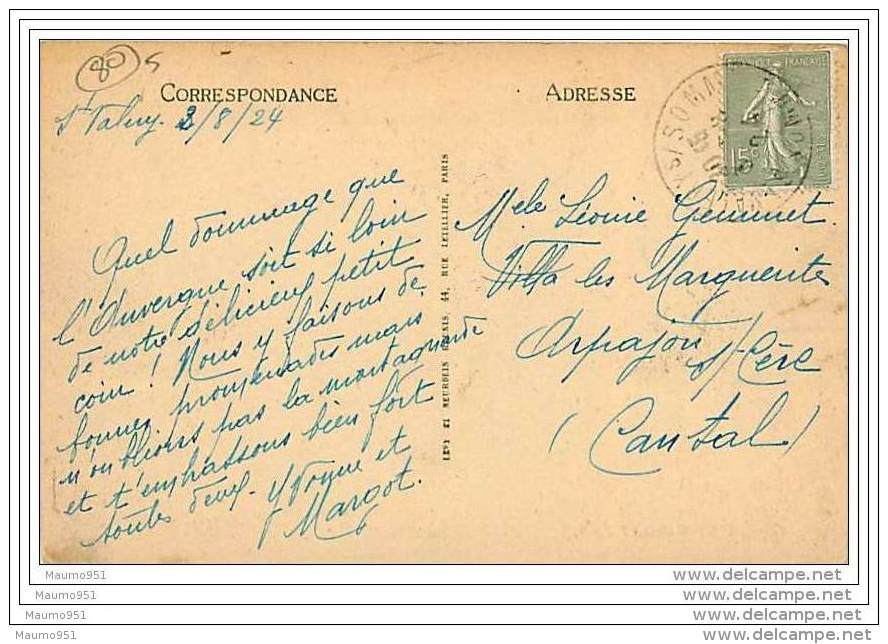 80 5
CORRESPONDANCE
ADRESSE
St Valery 2/8/24
Quel dommage que
l'Auvergne soit si loin
de notre délicieux petit
coin ! Nous y faisons de
bonnes promenades mais
n'oublions pas la montagnarde
et t'embrassons bien fort
toutes deux. Yvonne et
Margot.
44, RUE LETELLIER, PARIS
FRANÇAISE
15c
SOMME
Melle Léonie Gemmet
Villa les Marguerites
Arpajon s/ Cère
(Cantal)
Maumo951
Maumo951
Maumo951
Maumo951
www.delcampe.net
www.delcampe.net
www.delcampe.net
www.delcampe.net